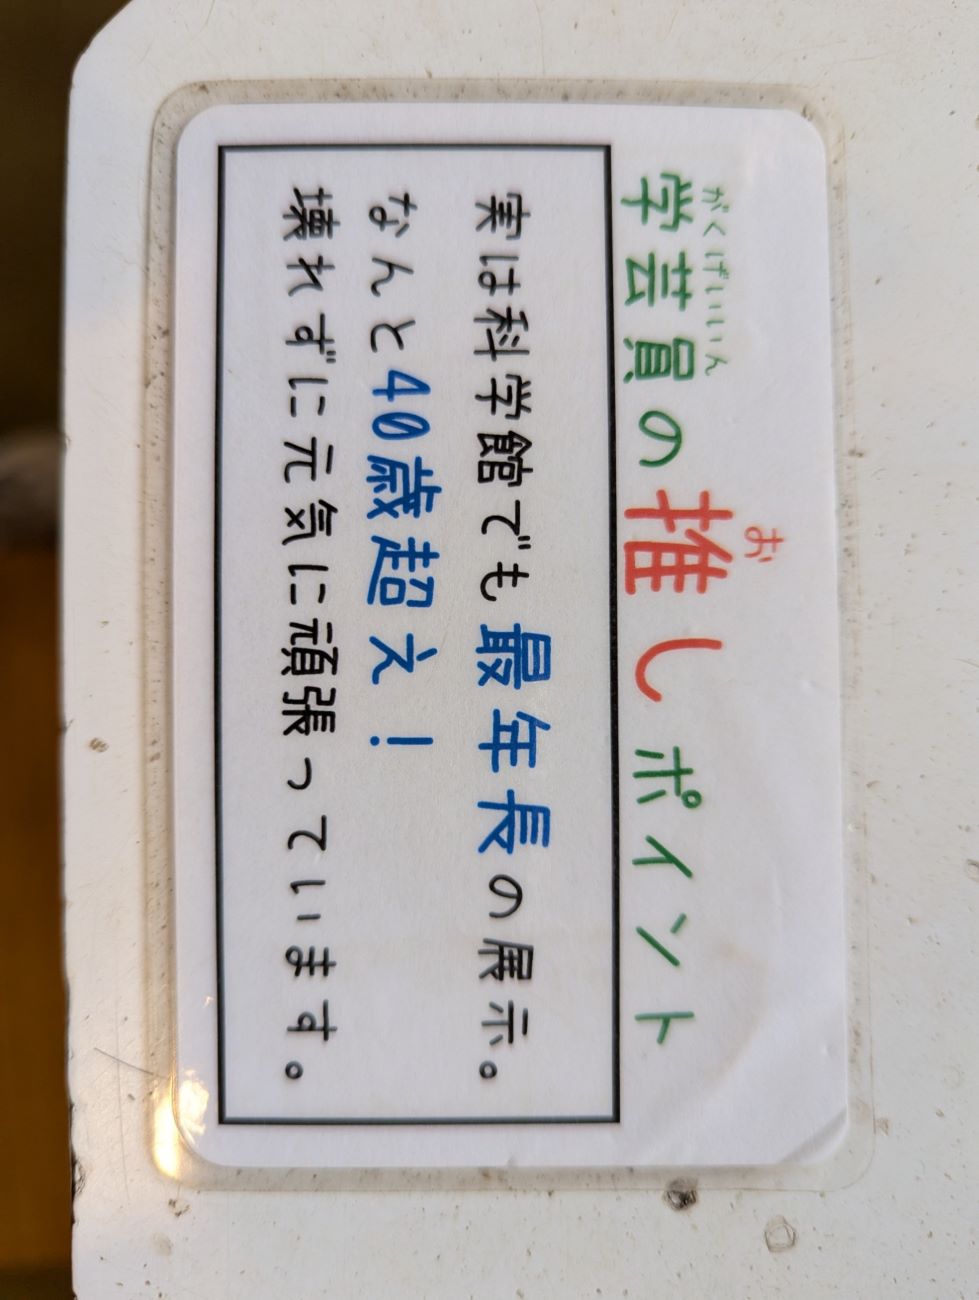 がくげいいん
お
学芸員の推しポイント
実は科学館でも最年長の展示。
なんと40歳超え！
壊れずに元気に頑張っています。